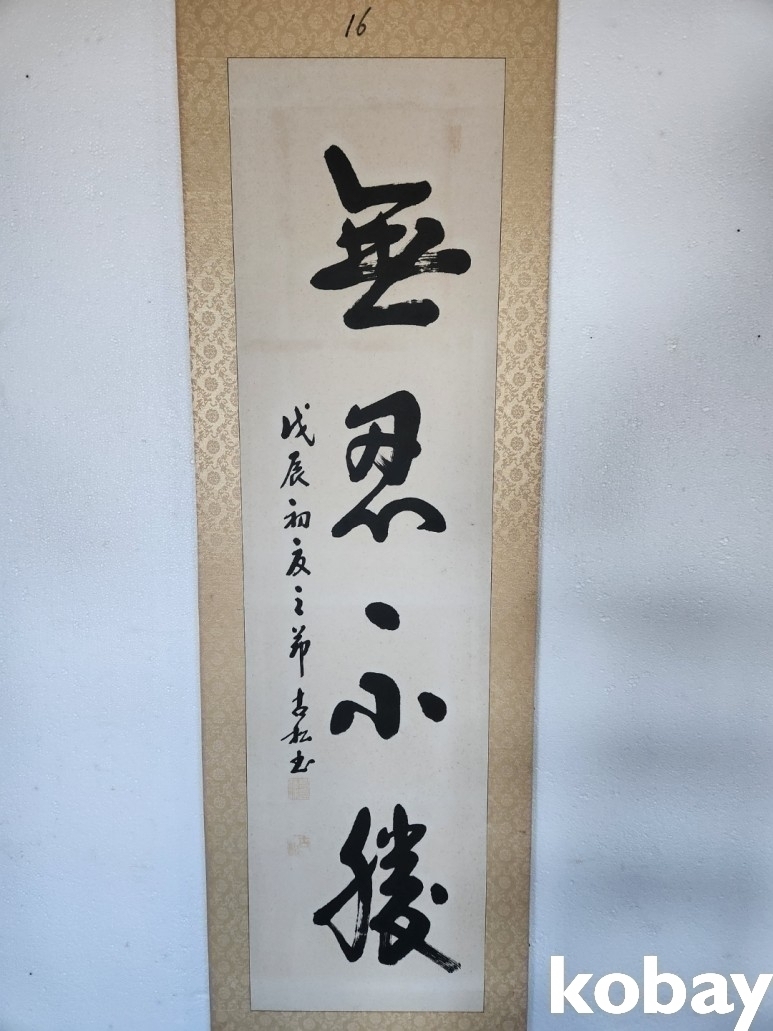 16
無忍不勝
戊辰初夏之節古松書
kobay